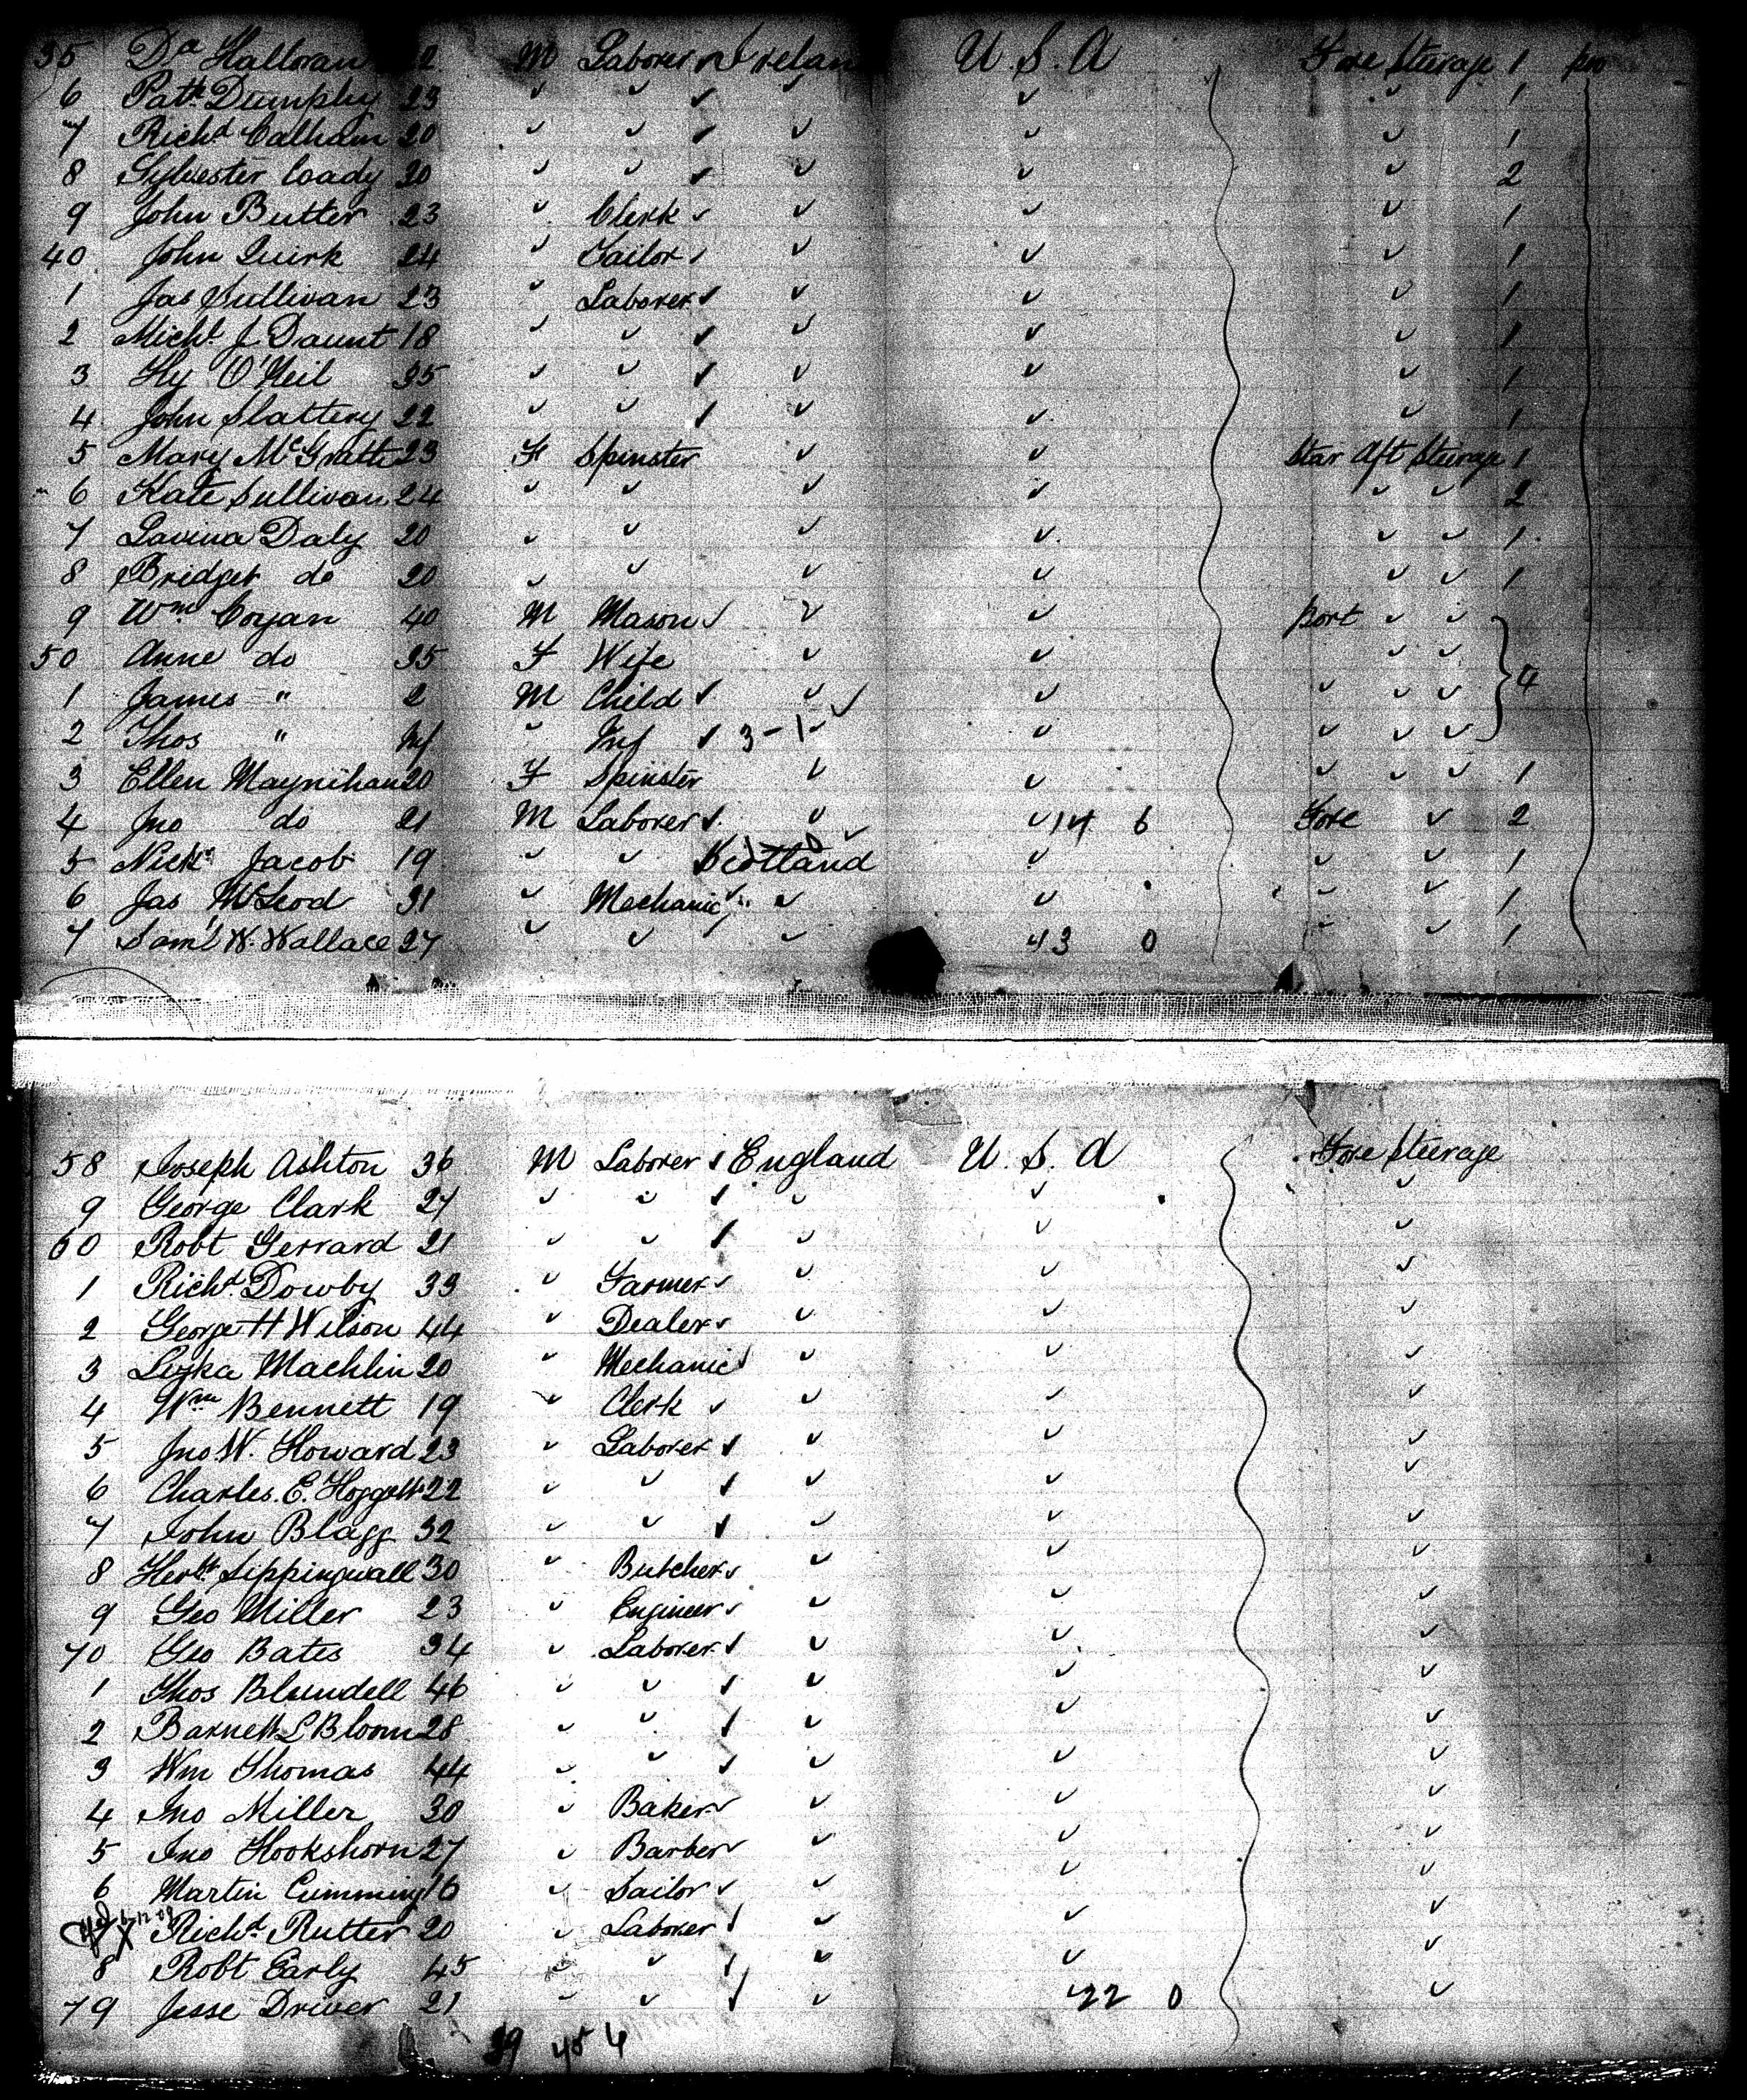 35 Da Halloran 22 M Laborer Ireland U.S.A Fore Steerage 1
6 Patk Dumphy 23 " " " " " 1
7 Richd Calham 20 " " " " " 1
8 Sylvester Coady 20 " " " " " 2
9 John Butter 23 " Clerk " " " 1
40 John Quirk 24 " Tailor " " " 1
1 Jas Sullivan 23 " Laborer " " " 1
2 Michl J Daunt 18 " " " " " 1
3 Hy O'Neil 35 " " " " " 1
4 John Slattery 22 " " " " " 1
5 Mary McGrath 23 F Spinster " " Star Aft Steerage 1
6 Kate Sullivan 24 " " " " " " 2
7 Lavina Daly 20 " " " " " " 1
8 Bridget do 20 " " " " " " 1
9 Wm Cogan 40 M Mason " " Port " "
50 Anne do 35 F Wife " " " "
1 James " 2 M Child " " " " " 4
2 Thos " Inf " Inf 3-1 " " " " "
3 Ellen Maynihan 20 F Spinster " " " " " 1
4 Jno do 21 M Laborer " " 14 6 Fore " 2
5 Nichs Jacob 19 " " Scotland " " " 1
6 Jas McLeod 31 " Mechanic " " " " 1
7 Saml W. Wallace 27 " " " 43 0 " " 1
58 Joseph Ashton 36 M Laborer England U.S.A Fore Steerage
9 George Clark 27 " " " " "
60 Robt Gerrard 21 " " " " "
1 Richd Dowby 33 " Farmer " " "
2 George H Wilson 44 " Dealer " " "
3 Machlin 20 " Mechanic " " "
4 Wm Bennett 19 " Clerk " " "
5 Jno. W. Howard 23 " Laborer " " "
6 Charles. E. Hoggett 22 " " " " "
7 John Blagg 32 " " " " "
8 Herbt Lippingwall 30 " Butcher " " "
9 Geo Miller 23 " Engineer " " "
70 Geo Bates 34 " Laborer " " "
1 Thos Blundell 46 " " " " "
2 Barnett L Bloom 28 " " " " "
3 Wm Thomas 44 " " " " "
4 Jno Miller 30 " Baker " " "
5 Jno Hookshorn 27 " Barber " " "
6 Martin Cumming 16 " Sailor " " "
X Richd Rutter 20 " Laborer " " "
8 Robt Early 45 " " " " "
79 Jesse Driver 21 " " " 22 0 "
39 45 6